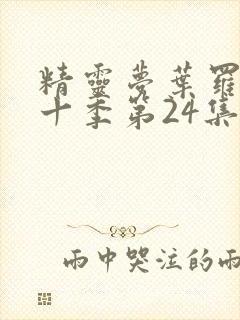 精靈夢葉羅
十季第24集
雨中哭泣的雨